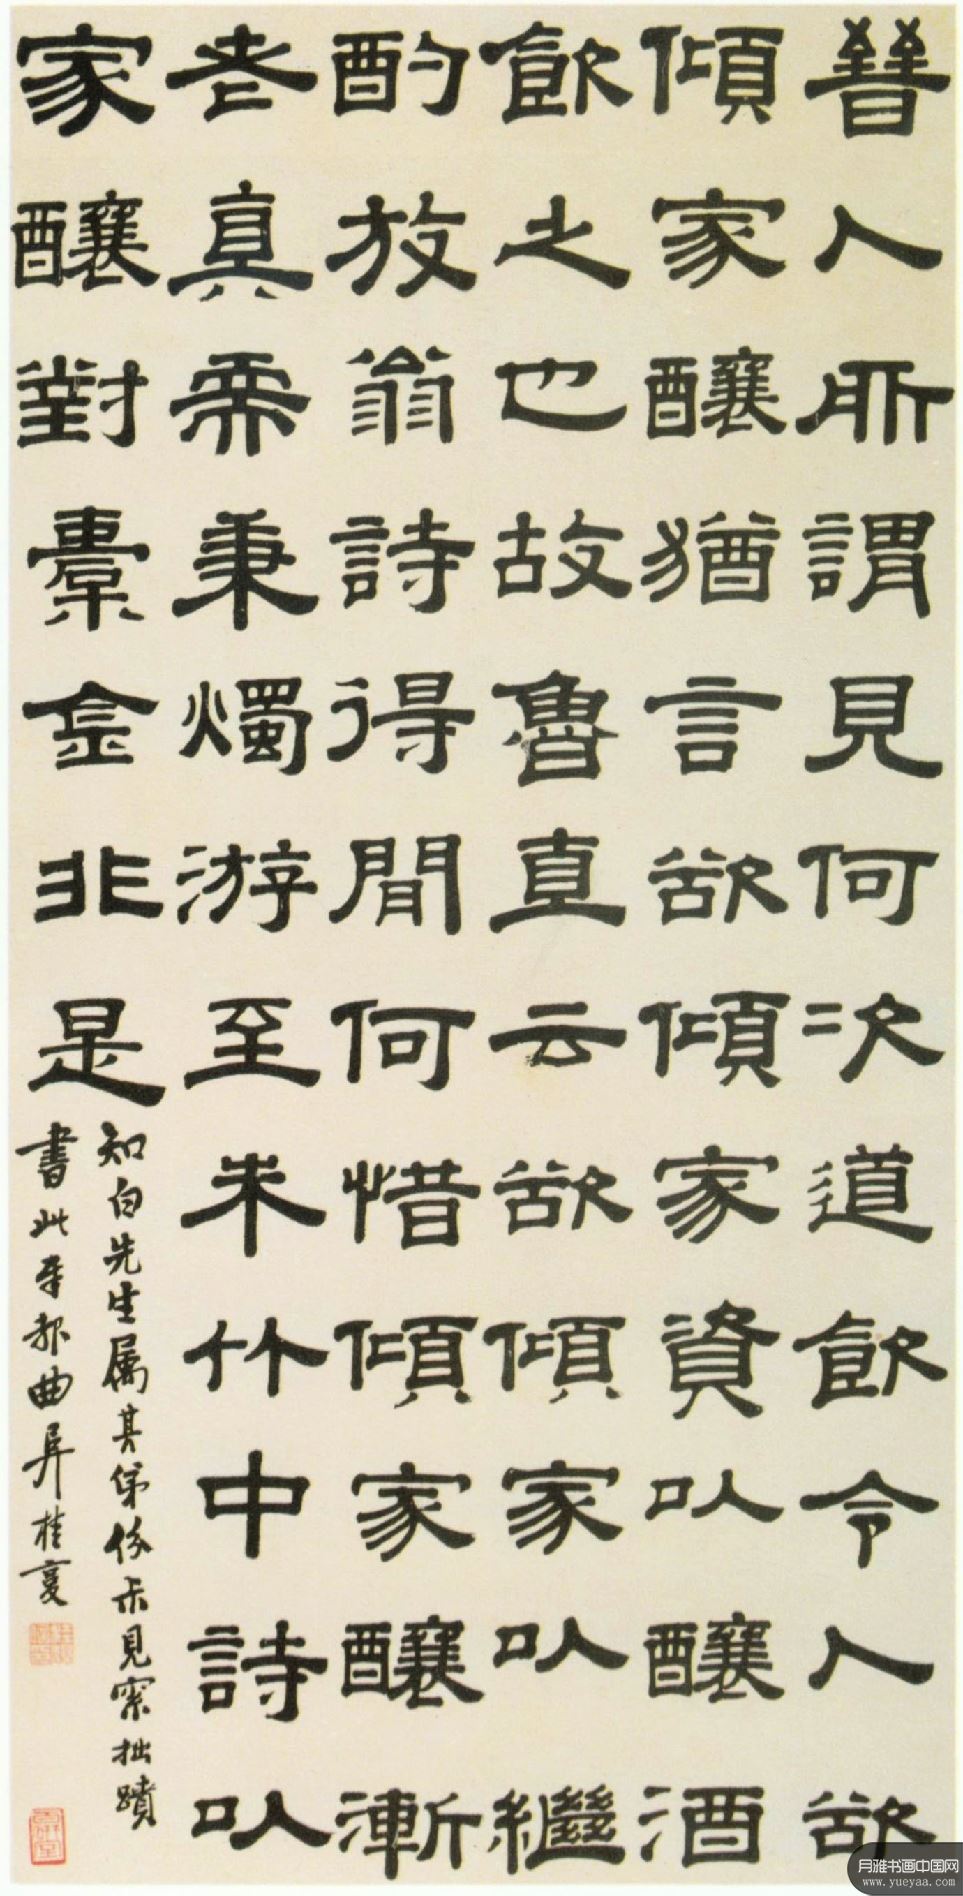 晉人所謂見何次道飲令人欲
傾家釀猶言欲傾家資以釀酒
飲之也故魯直云欲傾家以繼
酌放翁詩得閒何惜傾家釀漸
老真需秉燭游至朱竹中詩以
家釀對橐金非是
知白先生属其弟未見索拙蹟
書此曲阜桂馥
月雅书画中国网
www.yueyaa.com